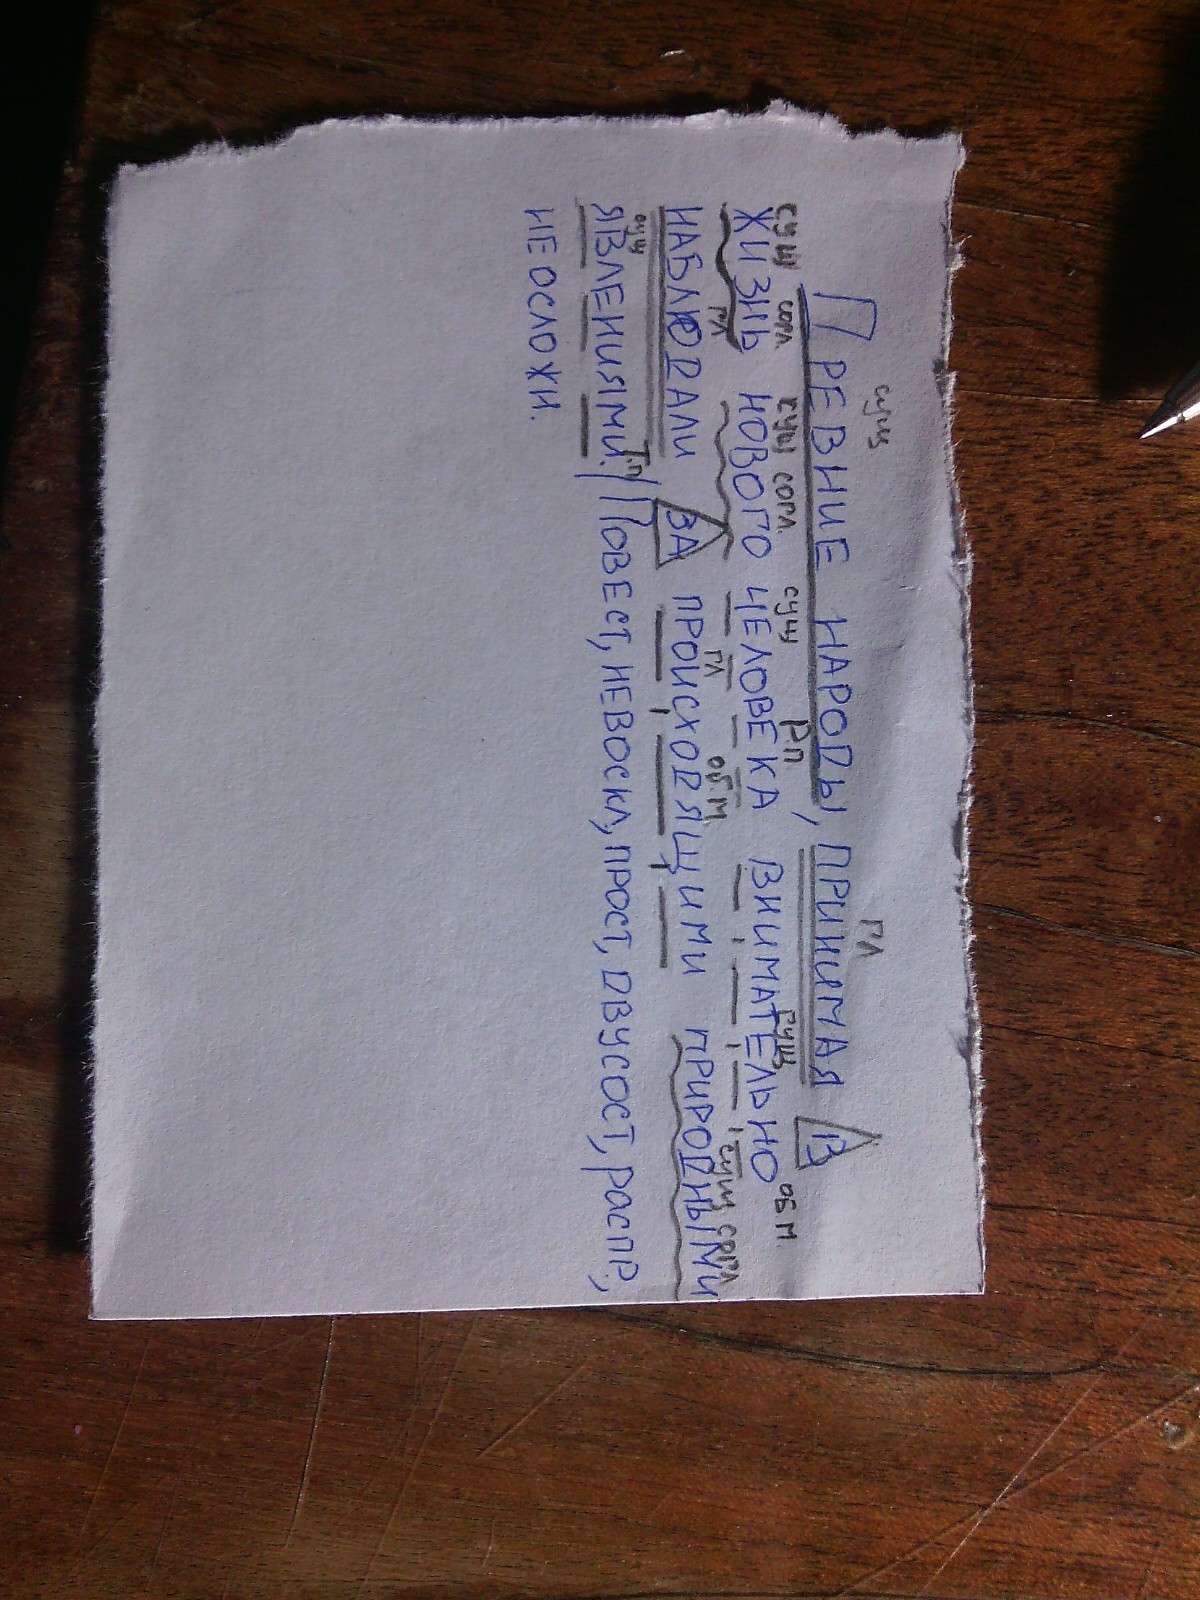 сущ гл
Древние народы, принимая в
сущ согл. сущ согл. сущ Р.п сущ об м.
жизнь нового человека внимательно
гл гл об. м сущ согл
наблюдали за происходящими природными
сущ Т.п
явлениями./Повест, невоскл, прост, двусост, распр,
неосложн.